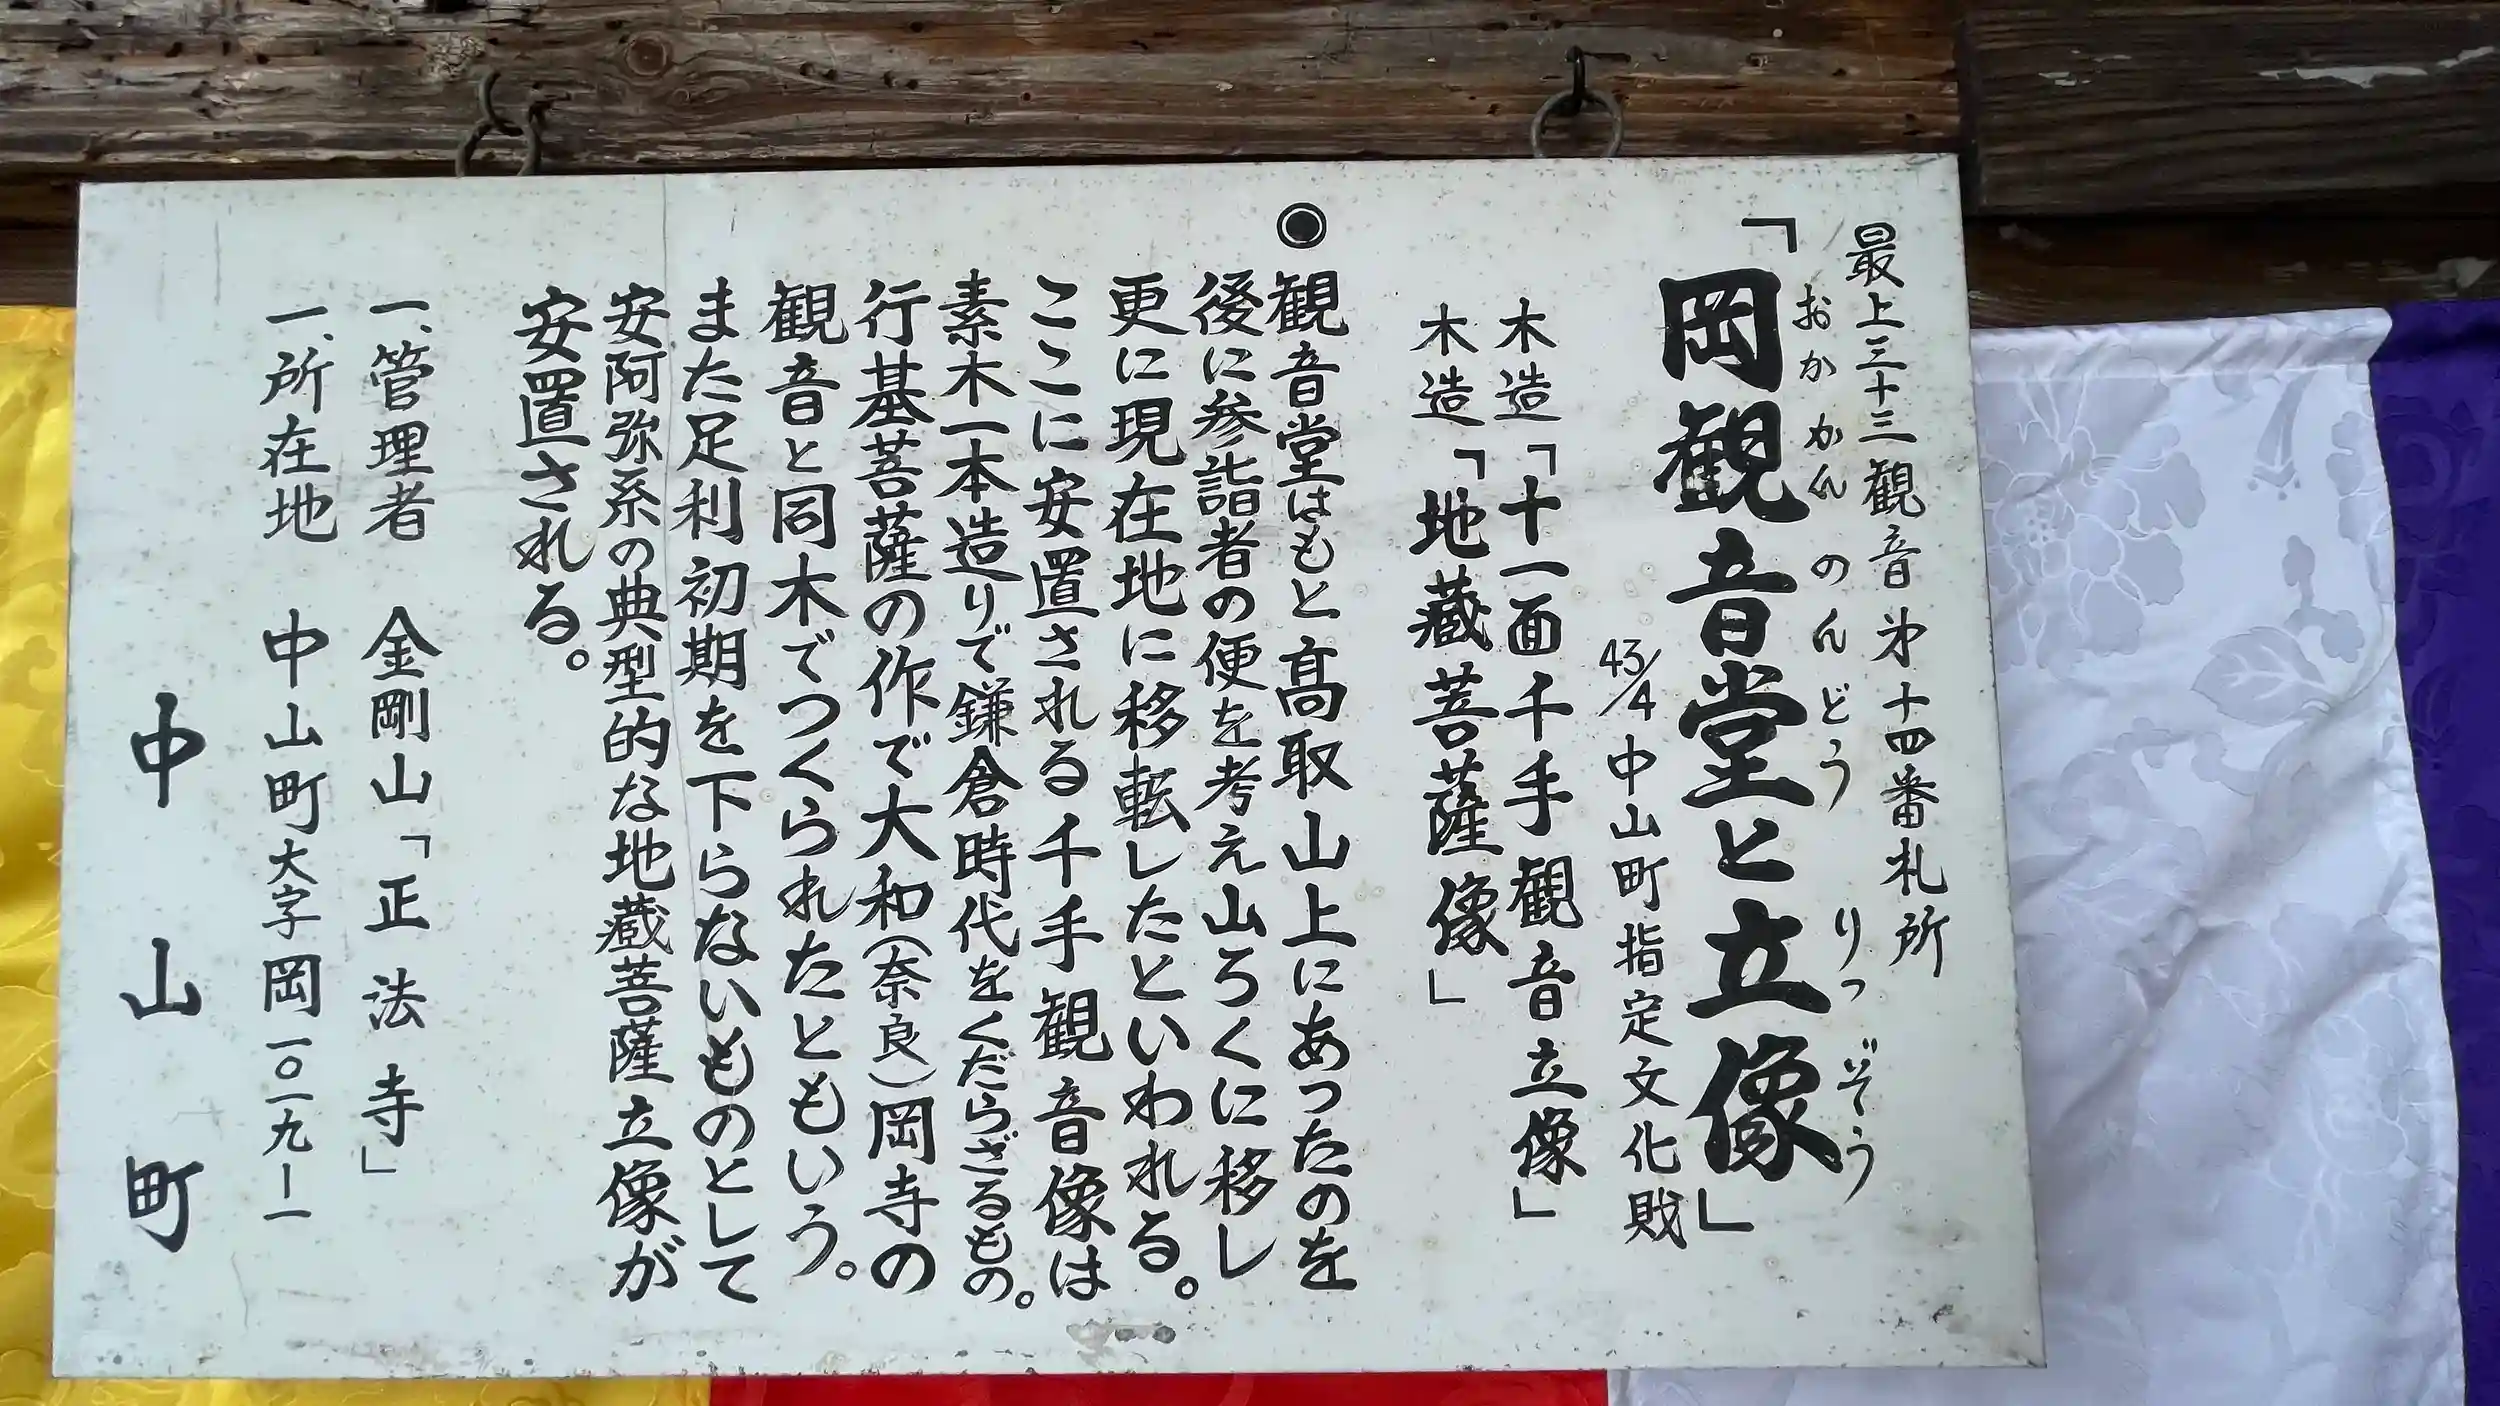 最上三十三観音第十四番札所
おかかんのんどう りつぞう
「岡観音堂と立像」
43/4 中山町指定文化財
木造「十一面千手観音立像」
木造「地蔵菩薩像」
◉観音堂はもと高取山上にあったのを
後に参詣者の便を考え山ろくに移し
更に現在地に移転したといわれる。
ここに安置される千手観音像は
素木一本造りで鎌倉時代をくだらざるもの。
行基菩薩の作で大和(奈良)岡寺の
観音と同木でつくられたともいう。
また足利初期を下らないものとして
安阿弥系の典型的な地蔵菩薩立像が
安置される。
一、管理者 金剛山「正法寺」
一、所在地 中山町大字岡一〇一九ー一
中山町